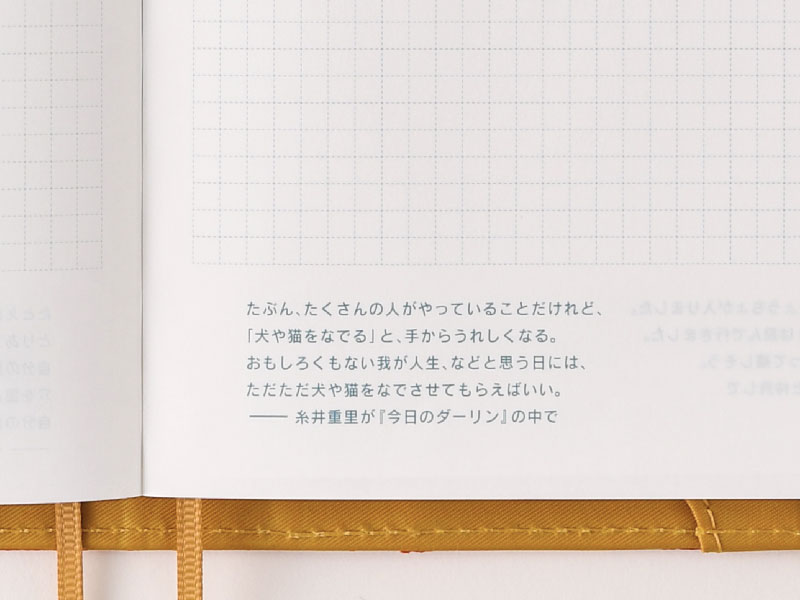 たぶん、たくさんの人がやっていることだけれど、
「犬や猫をなでる」と、手からうれしくなる。
おもしろくもない我が人生、などと思う日には、
ただただ犬や猫をなでさせてもらえばいい。
―― 糸井重里が『今日のダーリン』の中で